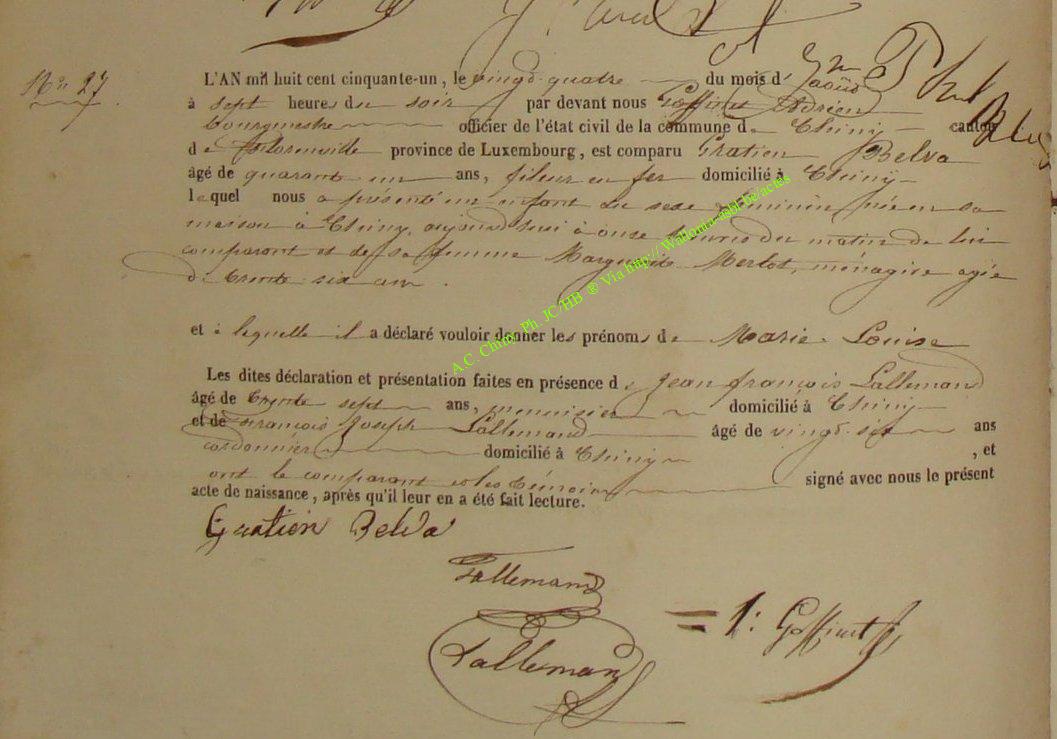 N° 27
L'AN mil huit cent cinquante-un, le vingt-quatre du mois d'août
à sept heures du soir par devant nous Goffinet Adrien
bourgmestre officier de l'état civil de la commune de Chiny canton
de Florenville province de Luxembourg, est comparu Gratien Belva
âgé de quarant un ans, fileur en fer domicilié à Chiny
lequel nous a présenté un enfant du sexe féminin née en sa
maison à Chiny, aujourd'hui à onze heures du matin de lui
comparant et de sa femme Marguerite Merlot, ménagère agée
de trente six an.
et à lequelle il a déclaré vouloir donner les prénoms de Marie-Louise
Les dites déclaration et présentation faites en présence de Jean françois Lallemand
âgé de trente sept ans, menuisier domicilié à Chiny
et de François Joseph Lallemand âgé de vingt-six ans
cordonnier domicilié à Chiny, et
ont le comparant et les témoins signé avec nous le présent
acte de naissance, après qu'il leur en a été fait lecture.
Gratien Belva
Lallemand
A: Goffinet
Lallemand
A.C. Chiny, Ph. JC/HB ® Via http://Wallonia-asbl.be/actes